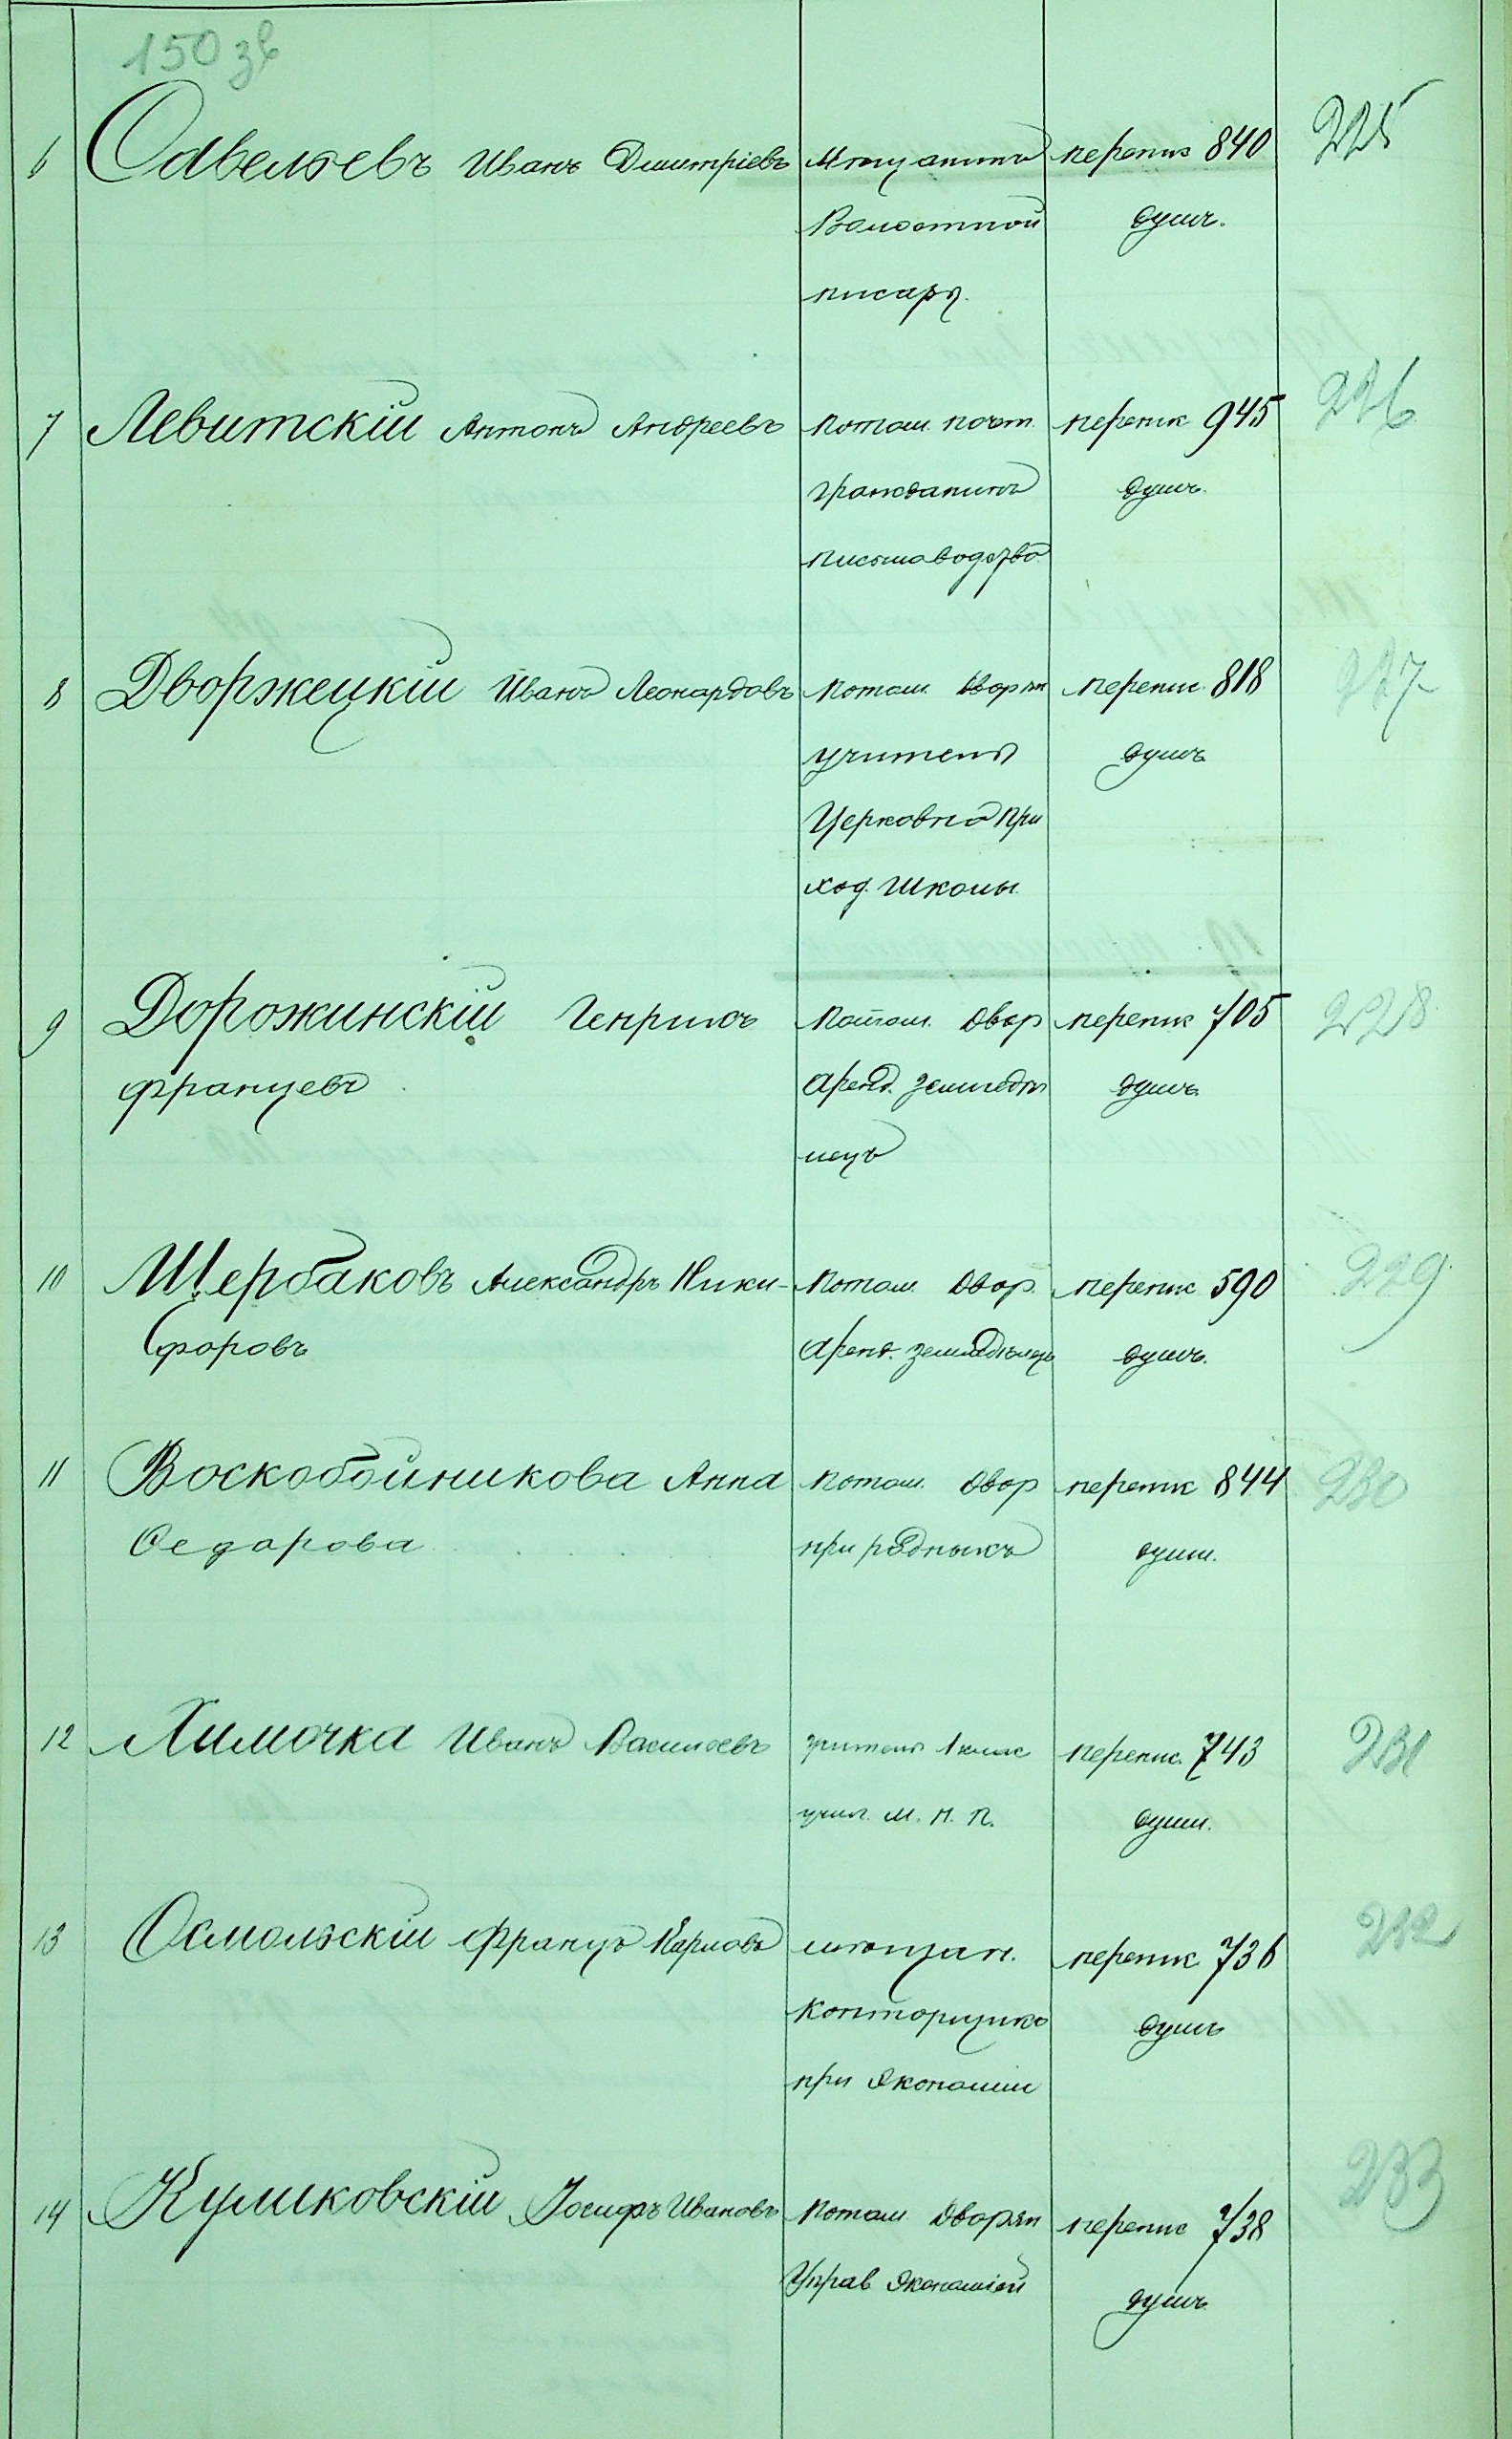 150 зв
6 Савельевъ Иванъ Дмитріевъ Мѣщанинъ перепис 840 225
Волостной душъ.
писарь.
7 Левитскій Антонъ Андреевъ потом. почет. перепис 945 226
гражданинъ душъ.
письмоводство
8 Дворжецкій Иванъ Леонардовъ потом. дворян перепис. 818 227
учитель душъ
Церковно при
ход. школы.
9 Дорожинскій Генрихъ потом. двор перепис 705 228
Францевъ аренд. земледѣ душъ.
лецъ
10 Щербаковъ Александръ Ники- потом. двор. перепис 590 229
форовъ аренд. земледѣлецъ душъ.
11 Воскобойникова Анна потом. двор перепис 844 230
Федорова при родныхъ душ.
12 Химочка Иванъ Васильевъ учитель 1 клас перепис. 743 231
учил. М. Н. П. душ.
13 Осмольскій Францъ Карловъ мѣщан. перепис. 736 232
конторщикъ душъ
при экономіи
14 Куликовскій Іосифъ Ивановъ потом. дворян перепис 738 233
Управ экономіей душъ